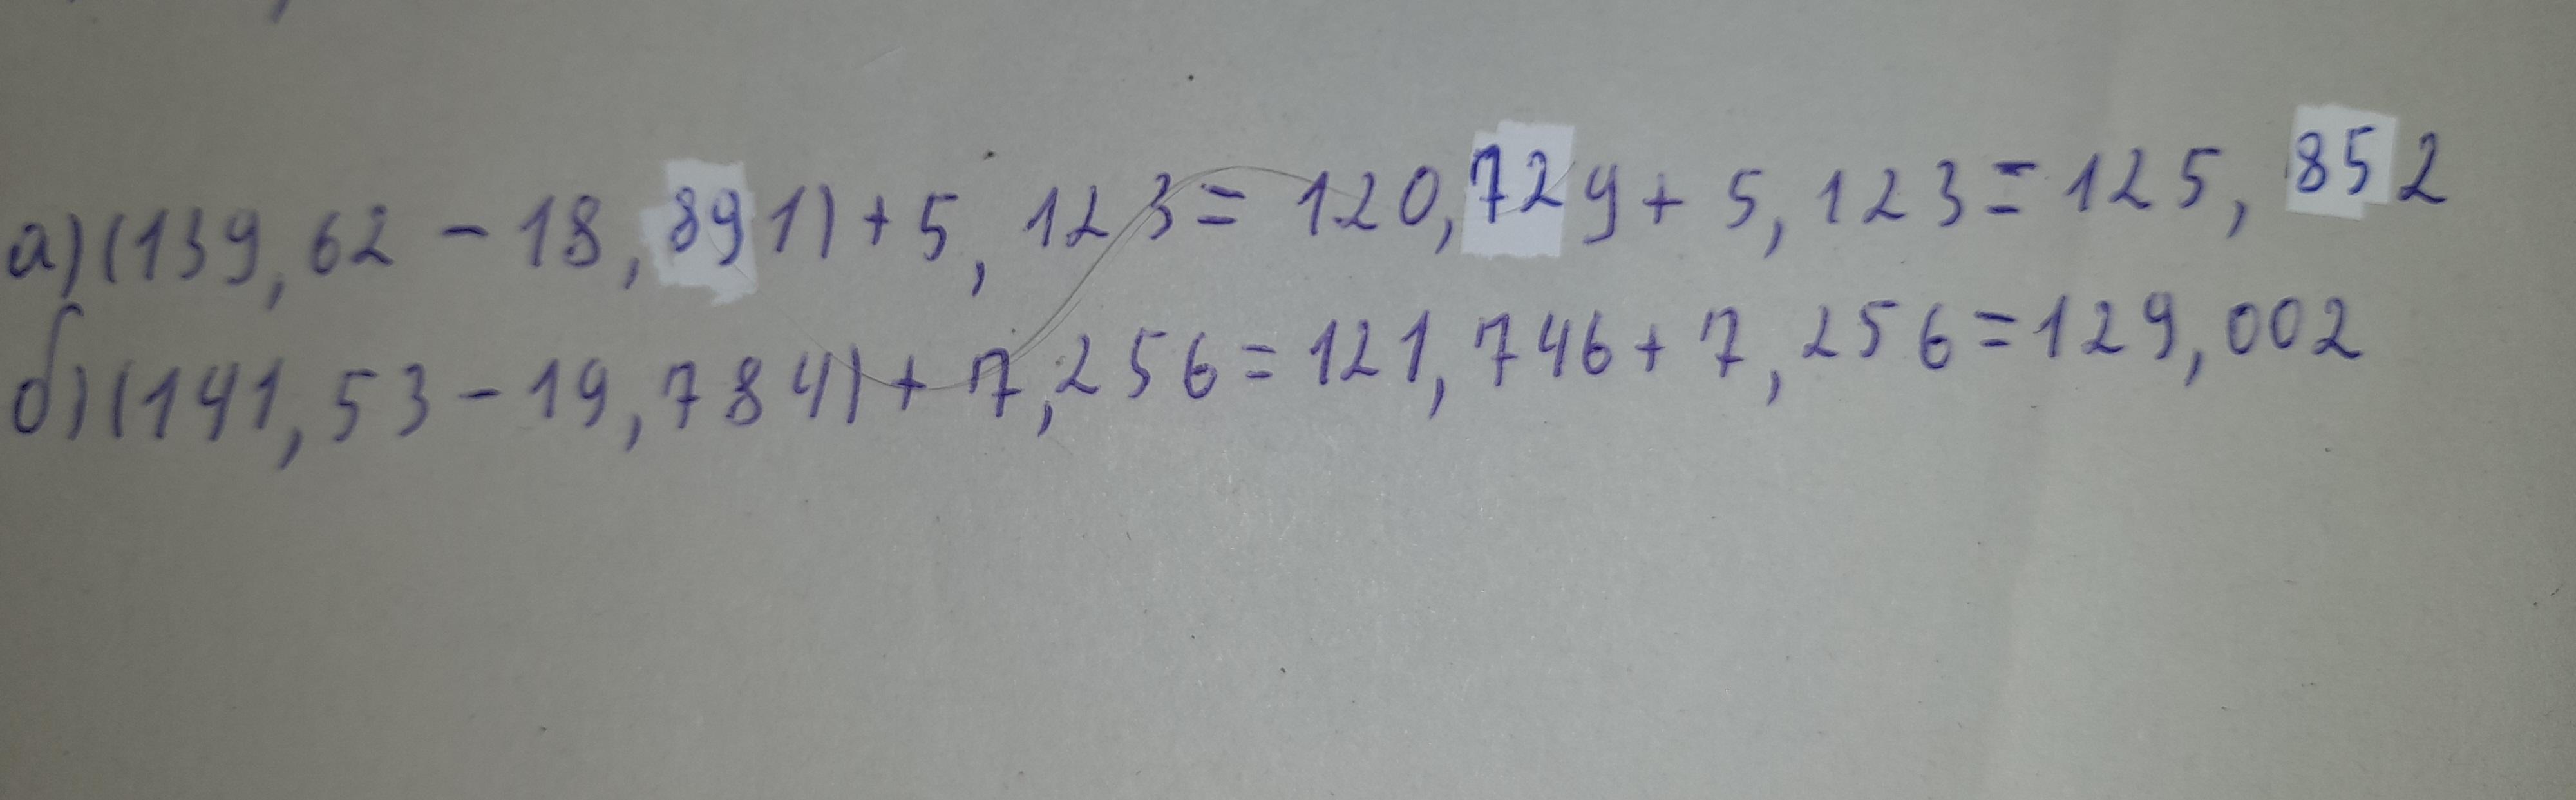 а) (139,62 - 18,891) + 5,123 = 120,729 + 5,123 = 125,852
б) (141,53 - 19,784) + 7,256 = 121,746 + 7,256 = 129,002